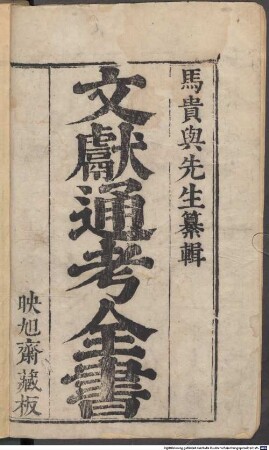 馬貴與先生纂輯
文獻通考全書
映旭齋藏板